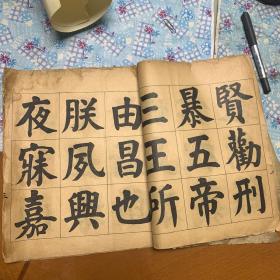 賢勸刑
暴五帝
三王所
由昌也
朕夙興
夜寐嘉